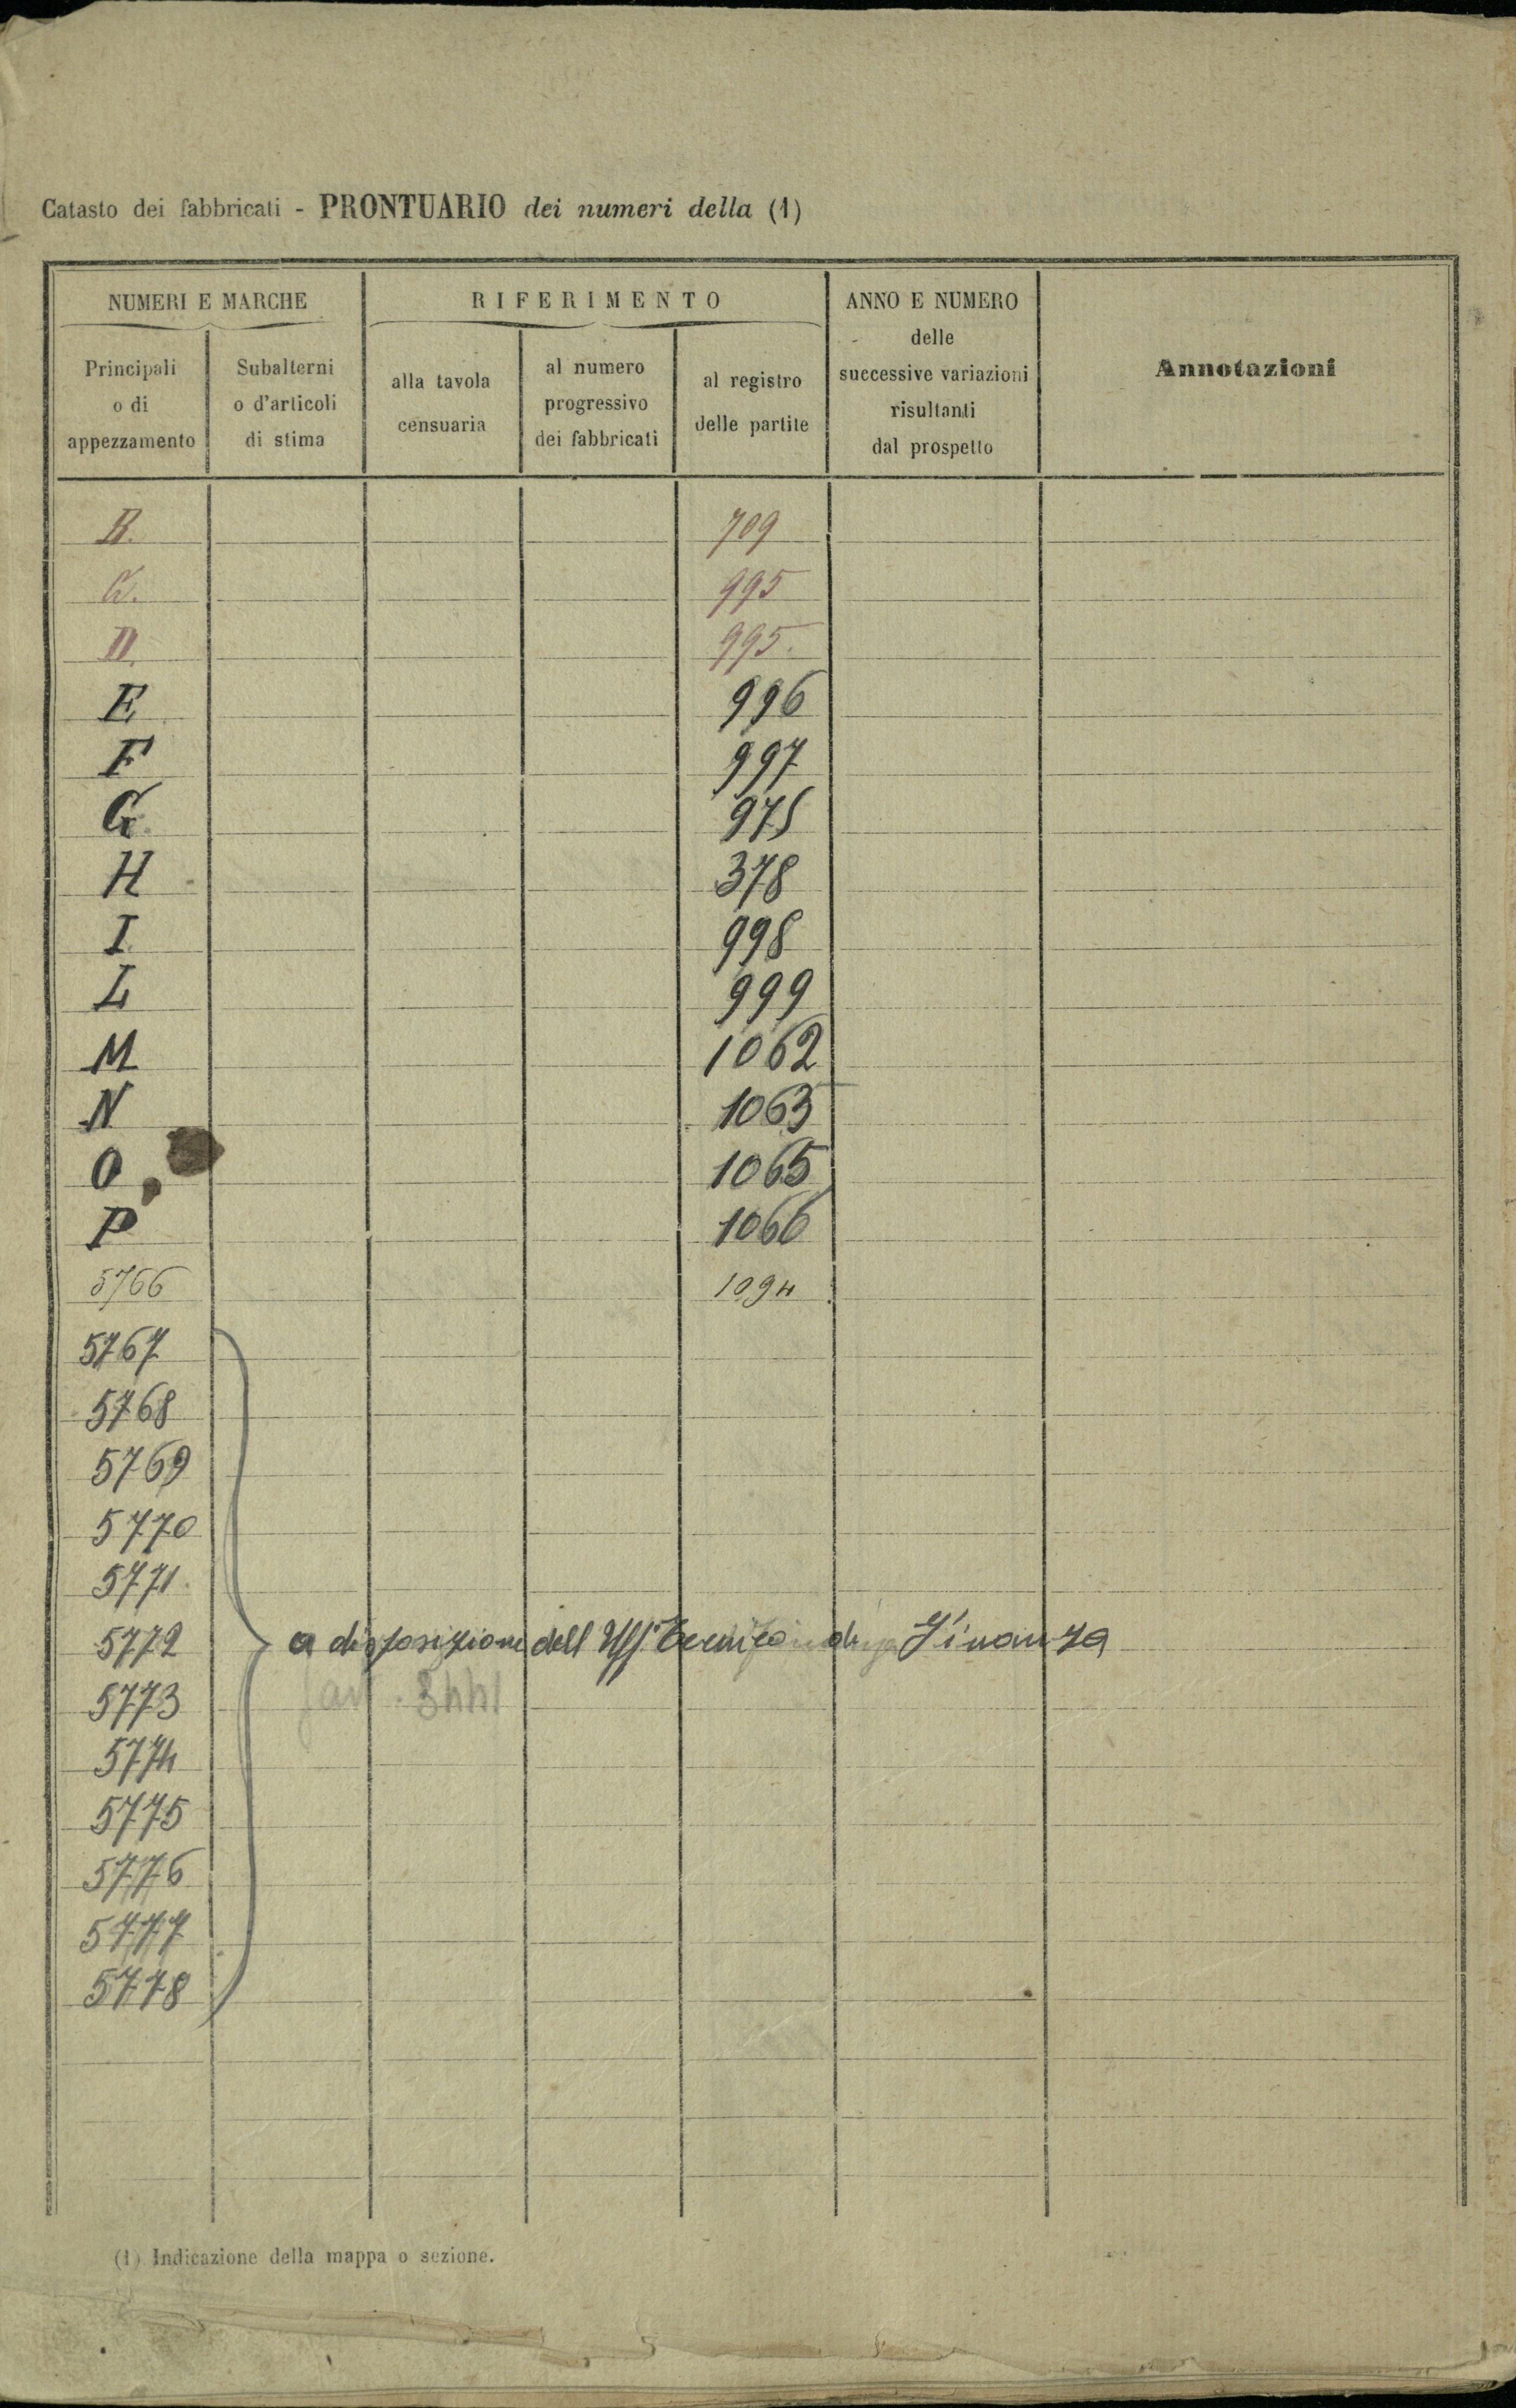 Catasto dei fabbricati - PRONTUARIO dei numeri della (1)
NUMERI E MARCHE
RIFERIMENTO
ANNO E NUMERO
delle
successive variazioni
risultanti
dal prospetto
Annotazioni
Principali
o di
appezzamento
Subalterni
o d'articoli
di stima
alla tavola
censuaria
al numero
progressivo
dei fabbricati
al registro
delle partite
B. 709
C. 995
D. 995.
E 996
F 997
G 975
H 378
I 998
L 999
M 1062
N 1063
O 1065
P 1066
5766 1094
5767
5768
5769
5770
5771
5772 a disposizione dell Uff. Tecnico di Finanza
5773
5774
5775
5776
5777
5778
(1) Indicazione della mappa o sezione.